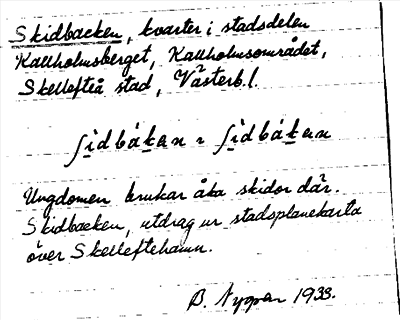 Skidbacken, kvarter i stadsdelen
Kallholmsberget, Kallholmsområdet,
Skellefteå stad, Västerb.l.
ʃidbákan = ʃidbákan
Ungdomen brukar åka skidor där.
Skidbacken, utdrag ur stadsplanekarta
över Skelleftehamn.
B. 1933.